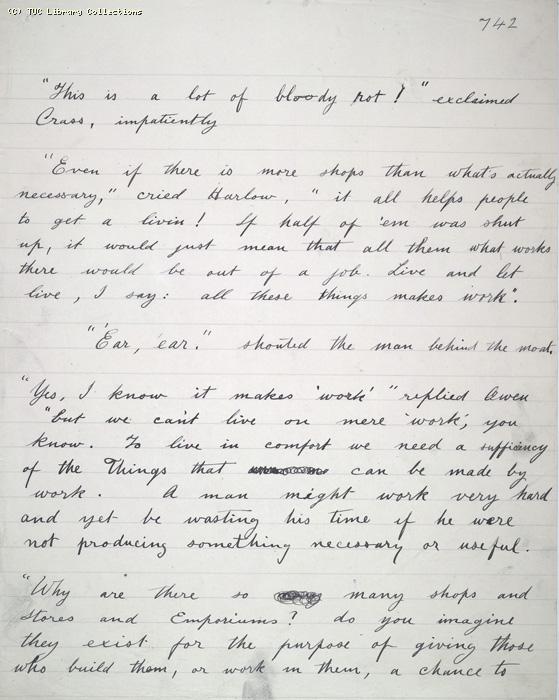 (C) TUC Library Collections
742
"This is a lot of bloody rot!" exclaimed
Crass, impatiently
"Even if there is more shops than what's actually
necessary," cried Harlow, "it all helps people
to get a livin! If half of 'em was shut
up, it would just mean that all them what works
there would be out of a job. Live and let
live, I say: all these things makes work".
"'Ear, 'ear." shouted the man behind the moat.
"Yes, I know it makes 'work'" replied Owen
"but we can't live on mere 'work', you
know. To live in comfort we need a sufficiency
of the Things that can be made by
work. A man might work very hard
and yet be wasting his time if he were
not producing something necessary or useful.
"Why are there so many shops and
stores and Emporiums? do you imagine
they exist for the purpose of giving those
who build them, or work in them, a chance to